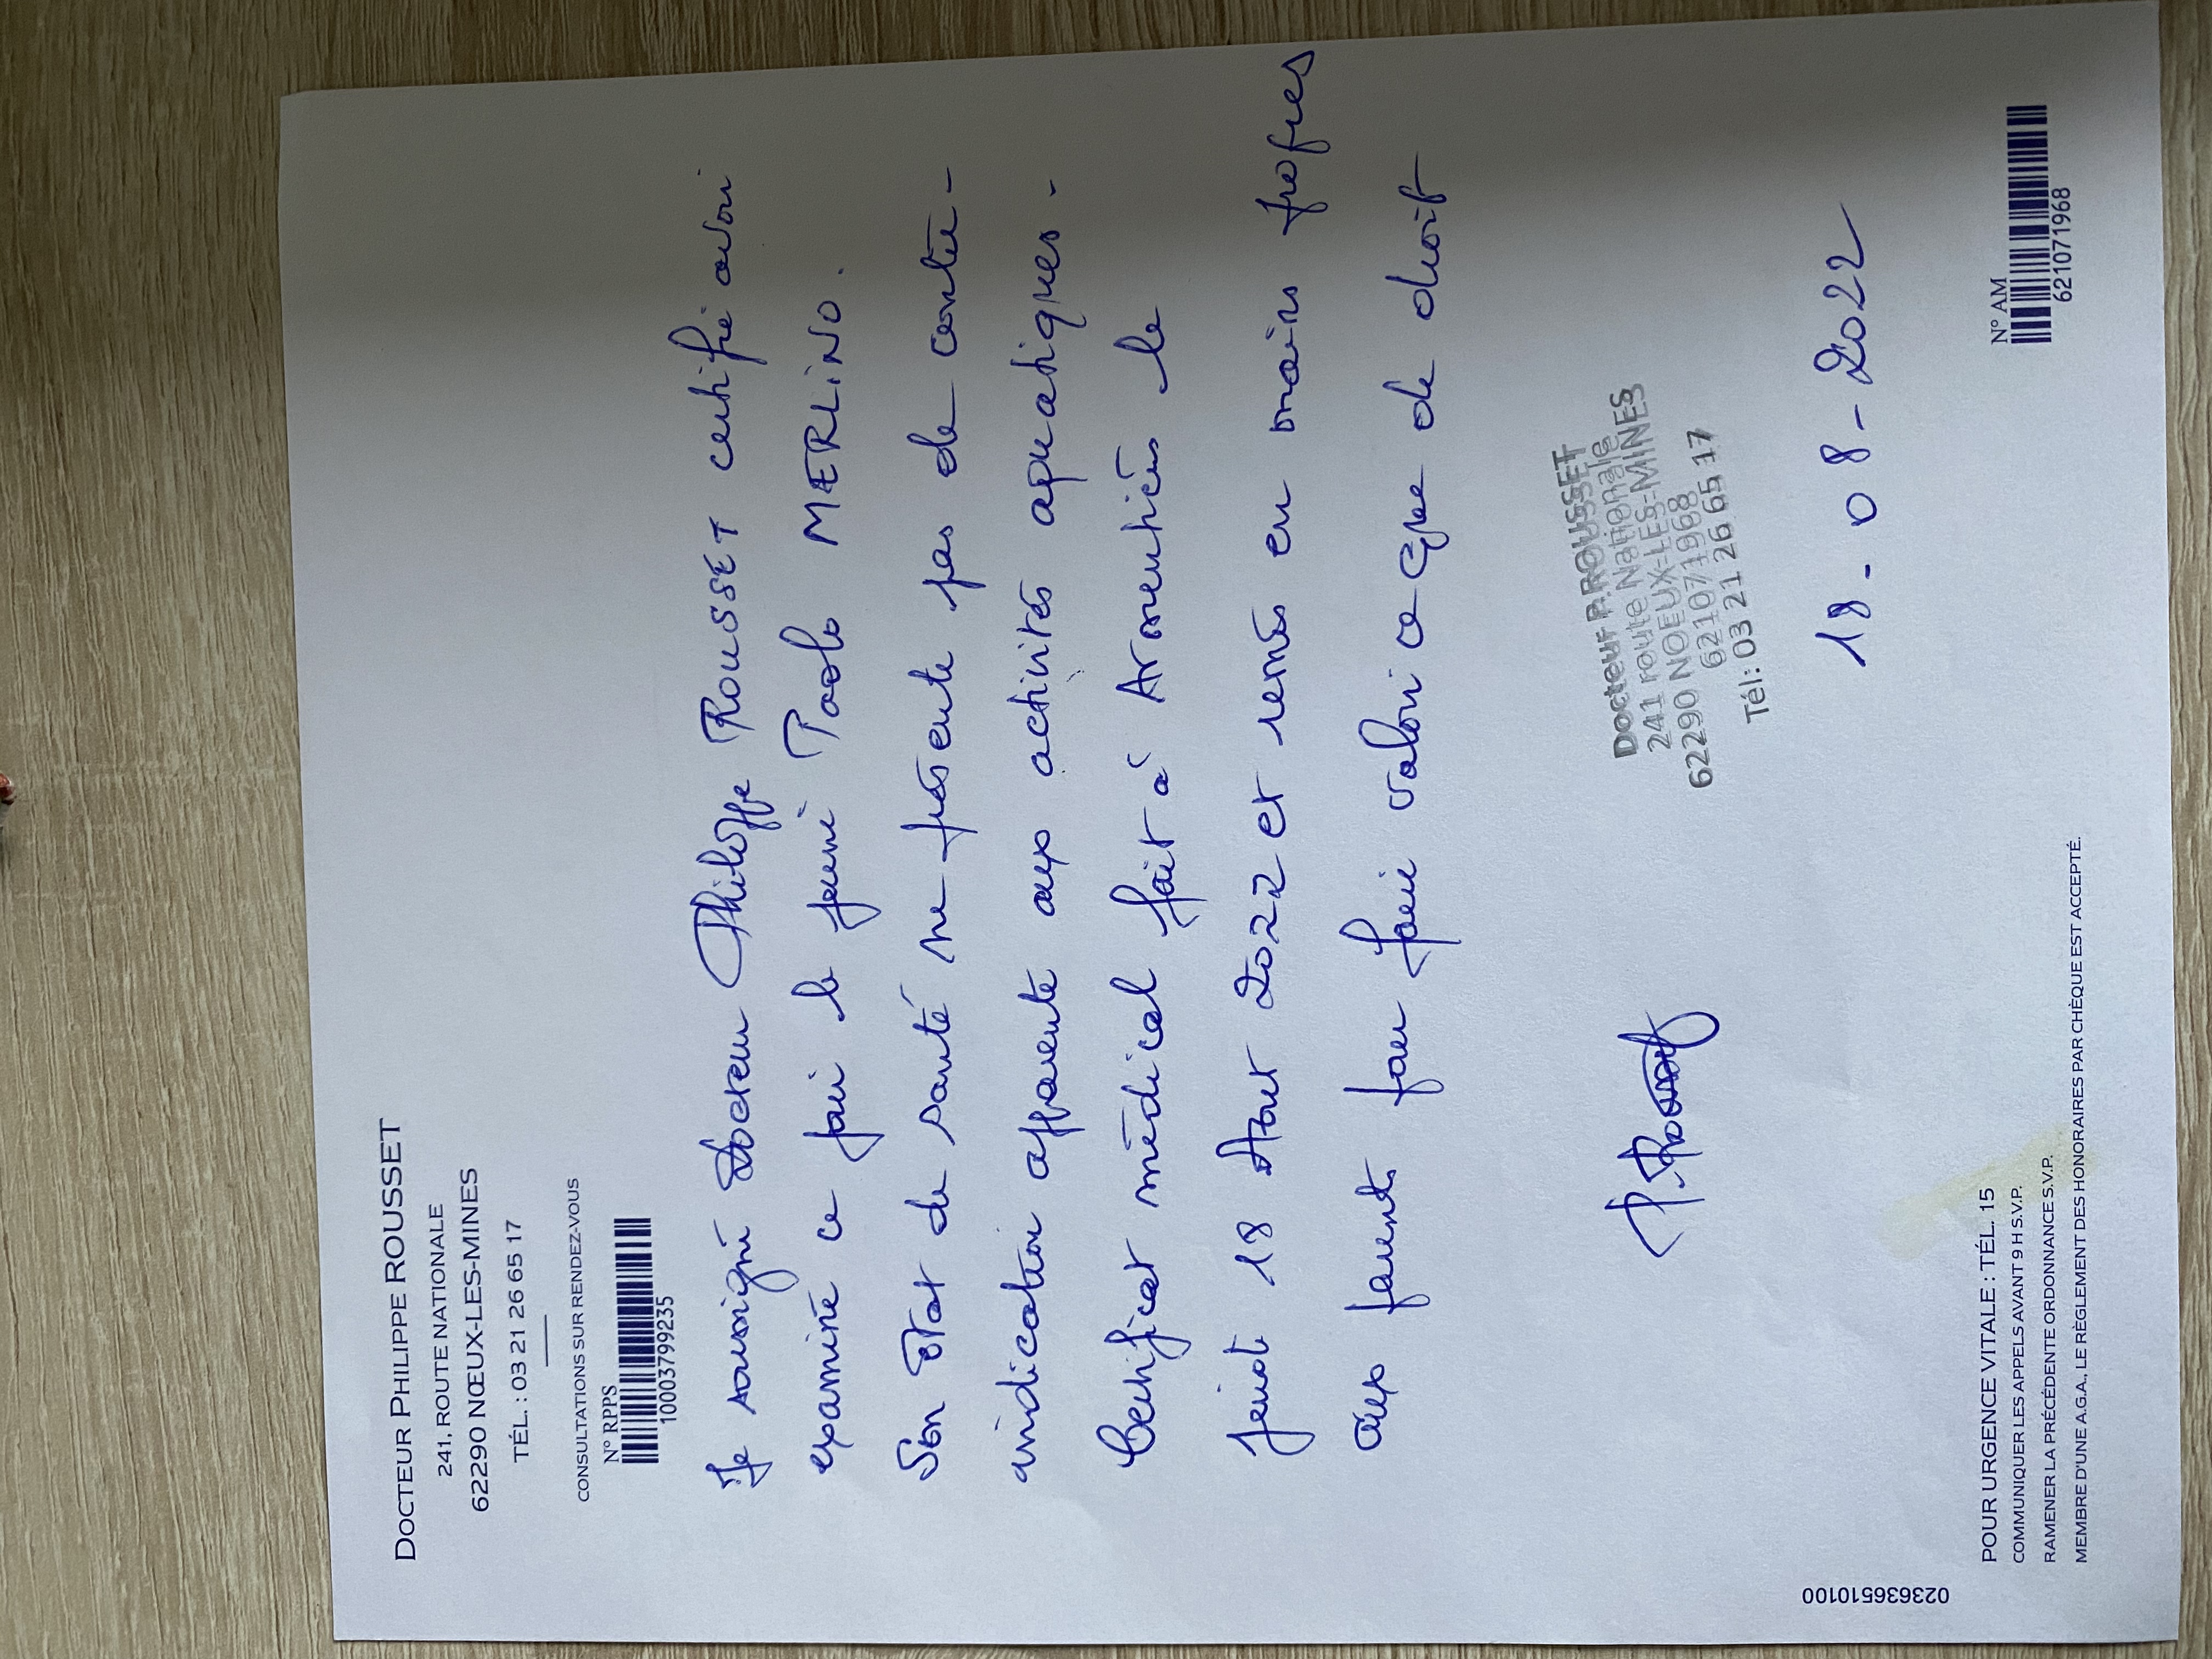 DOCTEUR PHILIPPE ROUSSET
241, ROUTE NATIONALE
62290 NŒUX-LES-MINES
TÉL. : 03 21 26 65 17
CONSULTATIONS SUR RENDEZ-VOUS
N° RPPS
10003799235
Je soussigné Docteur Philippe ROUSSET certifie avoir
examiné ce jour le jeune Paolo MERLINO.
Son Etat de santé ne présente pas de contre-
indication apparente aux activités aquatiques.
Certificat médical fait à Armentières le
jeudi 18 Aout 2022 et remis en mains propres
aux parents pour faire valoir ce que de droit
P. Rousset
Docteur P. ROUSSET
241 route Nationale
62290 NOEUX-LES-MINES
621071968
Tél: 03 21 26 65 17
18-08-2022
POUR URGENCE VITALE : TÉL. 15
COMMUNIQUER LES APPELS AVANT 9 H S.V.P.
RAMENER LA PRÉCÉDENTE ORDONNANCE S.V.P.
MEMBRE D'UNE A.G.A., LE RÈGLEMENT DES HONORAIRES PAR CHÈQUE EST ACCEPTÉ.
N° AM
621071968
023636510100